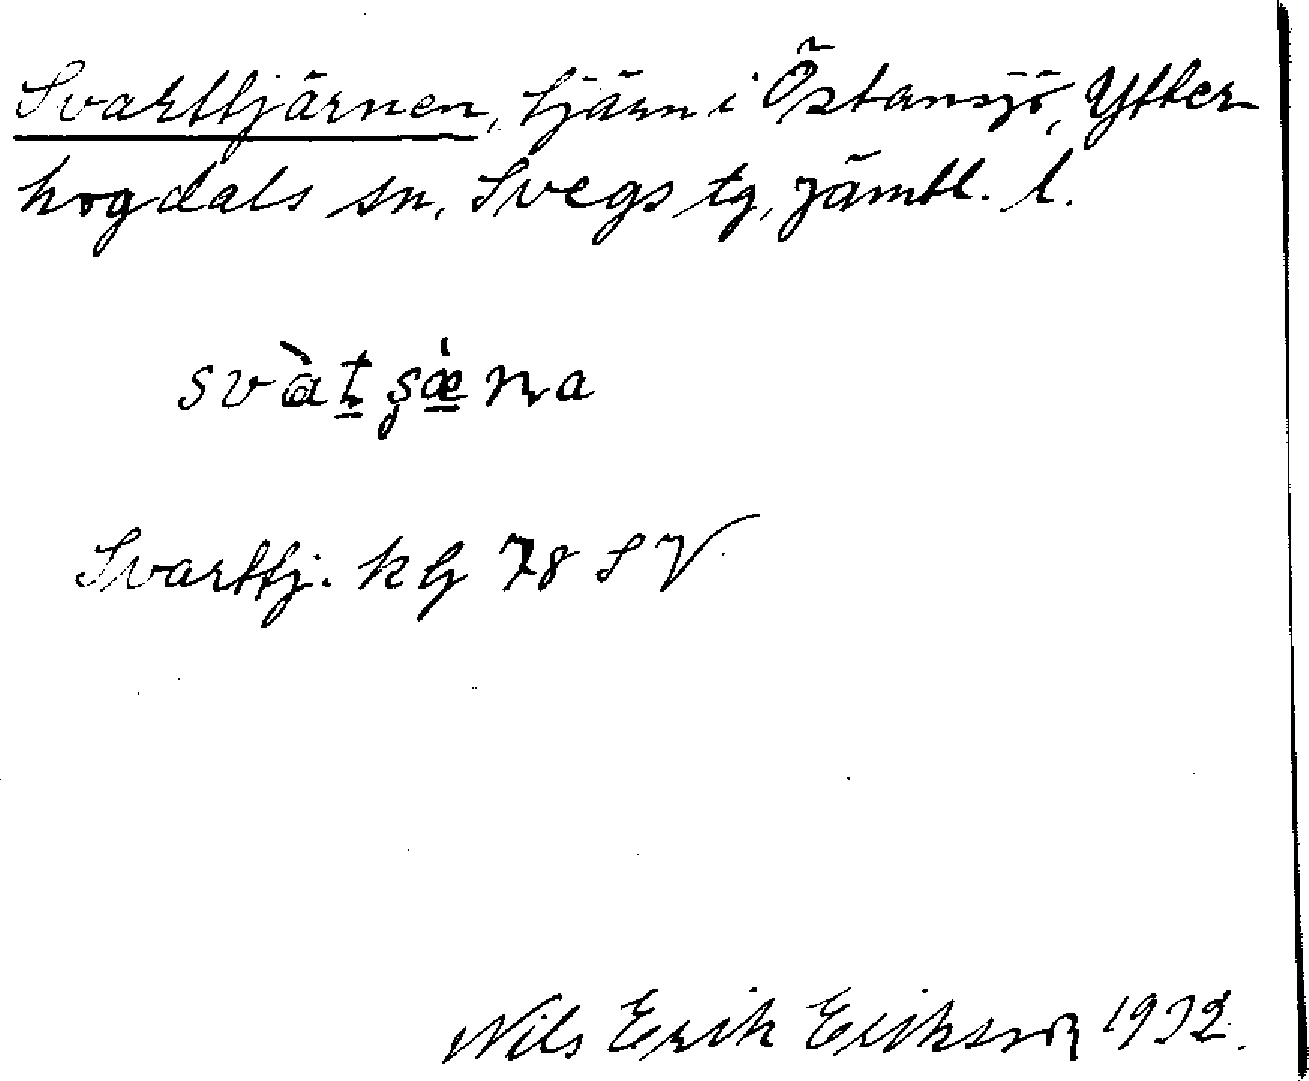 Svarttjärnen, tjärn i Östansjö, Ytter-
hogdals sn, Svegs tg, Jämtl. l.
svàt̠şæ̠̀ɳa
Svarttj. kbl 78 SV.
Nils Erik Eriksson 1932.